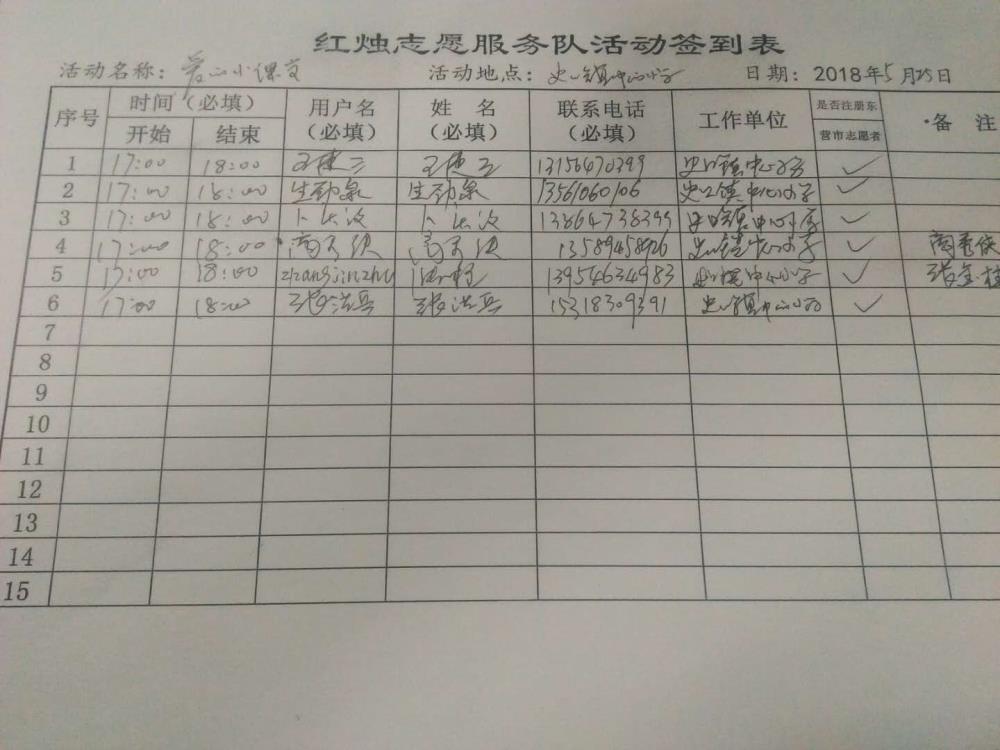 红烛志愿服务队活动签到表
活动名称：爱心小课堂 活动地点：史口镇中心小学 日期：2018年5月25日
序号 时间（必填） 用户名（必填） 姓名（必填） 联系电话（必填） 工作单位 是否注册东营市志愿者 ·备注
开始 结束
1 17:00 18:00 13156470399 史口镇中心小学 ✓
2 17:00 18:00 生劲泉 生劲泉 13561060106 史口镇中心小学 ✓
3 17:00 18:00 13864738399 史口镇中心小学 ✓
4 17:00 18:00 史口镇中心小学 ✓
5 17:00 18:00 zhangjinzhu 13954634983 史口镇中心小学 ✓
6 17:00 18:00 张洪兵 张洪兵 15318309391 史口镇中心小学 ✓
7
8
9
10
11
12
13
14
15